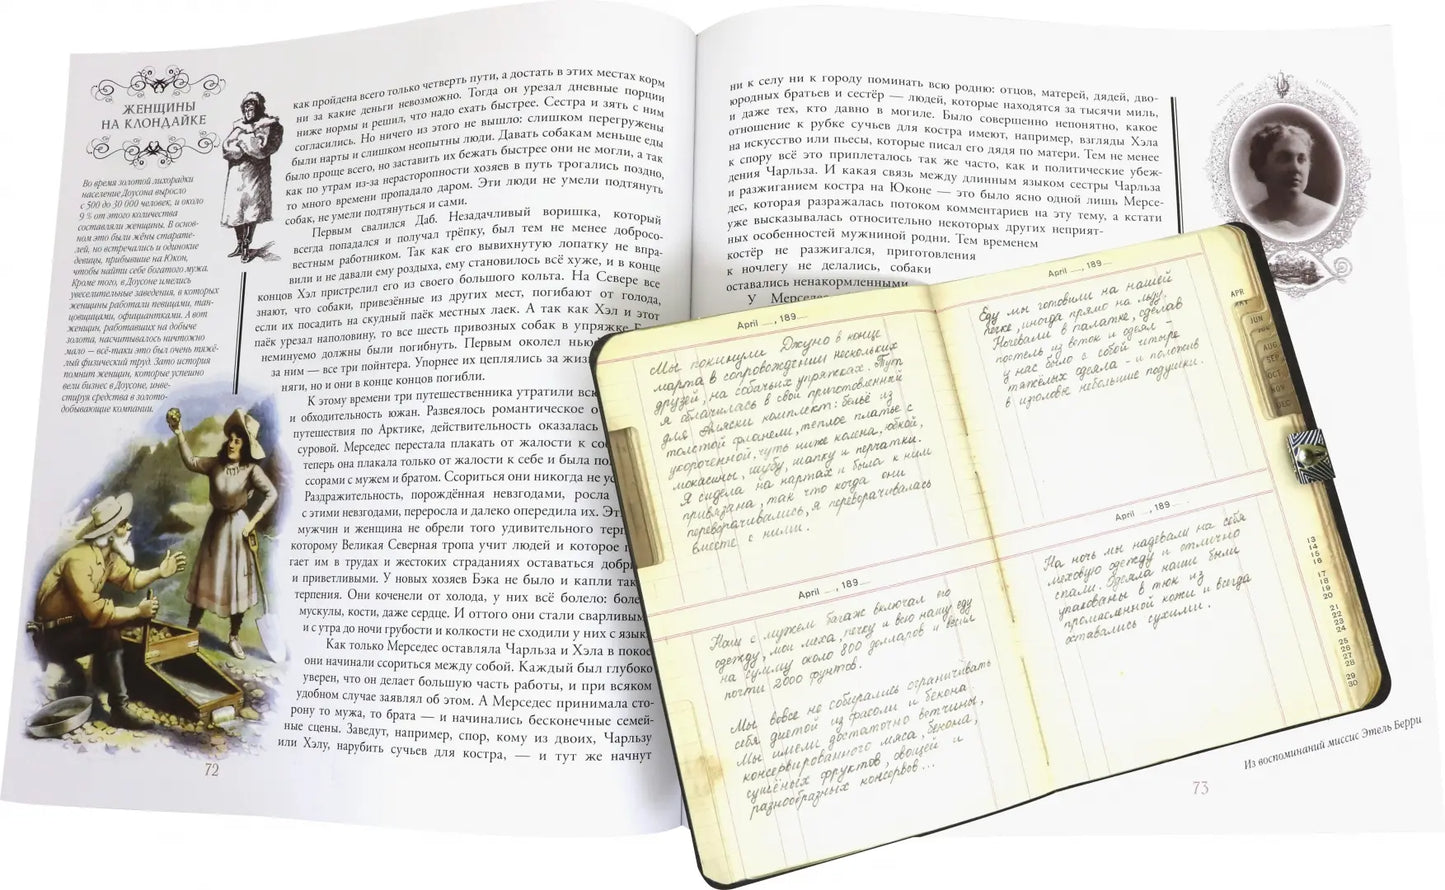 ЖЕНЩИНЫ
НА КЛОНДАЙКЕ
Во время золотой лихорадки
население Доусона выросло
с 500 до 30 000 человек, и около
9 % от этого количества
составляли женщины. В основ-
ном это были жёны старате-
лей, но встречались и одинокие
девицы, прибывшие на Юкон,
чтобы найти себе богатого мужа.
Кроме того, в Доусоне имелись
увеселительные заведения, в которых
женщины работали певицами, тан-
цовщицами, официантками. А вот
женщин, работавших на добыче
золота, насчитывалось ничтожно
мало — всё-таки это был очень тяжё-
лый физический труд. Зато история
помнит женщин, которые успешно
вели бизнес в Доусоне, инве-
стируя средства в золото-
добывающие компании.
как пройдена всего только четверть пути, а достать в этих местах корм
ни за какие деньги невозможно. Тогда он урезал дневные порции
ниже нормы и решил, что надо ехать быстрее. Сестра и зять с ним
согласились. Но ничего из этого не вышло: слишком перегружены
были нарты и слишком неопытны люди. Давать собакам меньше еды
было проще всего, но заставить их бежать быстрее они не могли, а так
как по утрам из-за нерасторопности хозяев в путь трогались поздно,
то много времени пропадало даром. Эти люди не умели подтянуть
собак, не умели подтянуться и сами.
Первым свалился Даб. Незадачливый воришка, который
всегда попадался и получал трёпку, был тем не менее добросо-
вестным работником. Так как его вывихнутую лопатку не впра-
вили и не давали ему роздыха, ему становилось всё хуже, и в конце
концов Хэл пристрелил его из своего большого кольта. На Севере все
знают, что собаки, привезённые из других мест, погибают от голода,
если их посадить на скудный паёк местных лаек. А так как Хэл и этот
паёк урезал наполовину, то все шесть привозных собак в упряжке
неминуемо должны были погибнуть. Первым околел
за ним — все три пойнтера. Упорнее их цеплялись за
няги, но и они в конце концов погибли.
К этому времени три путешественника утратили
и обходительность южан. Развеялось романтическое
путешествия по Арктике, действительность оказалась
суровой. Мерседес перестала плакать от жалости к
теперь она плакала только от жалости к себе и была
ссорами с мужем и братом. Ссориться они никогда не
Раздражительность, порождённая невзгодами, росла
с этими невзгодами, переросла и далеко опередила их.
мужчин и женщина не обрели того удивительного
которому Великая Северная тропа учит людей и которое
гает им в трудах и жестоких страданиях оставаться
и приветливыми. У новых хозяев Бэка не было и капли
терпения. Они коченели от холода, у них всё болело:
мускулы, кости, даже сердце. И оттого они стали сварливым
и с утра до ночи грубости и колкости не сходили у них с язык
Как только Мерседес оставляла Чарльза и Хэла в покое
они начинали ссориться между собой. Каждый был глубоко
уверен, что он делает большую часть работы, и при всяком
удобном случае заявлял об этом. А Мерседес принимала сто-
рону то мужа, то брата — и начинались бесконечные семей-
ные сцены. Заведут, например, спор, кому из двоих, Чарльзу
или Хэлу, нарубить сучьев для костра, — и тут же начнут
72
ни к селу ни к городу поминать всю родню: отцов, матерей, дядей, дво-
юродных братьев и сестёр — людей, которые находятся за тысячи миль,
и даже тех, кто давно в могиле. Было совершенно непонятно, какое
отношение к рубке сучьев для костра имеют, например, взгляды Хэла
на искусство или пьесы, которые писал его дядя по матери. Тем не менее
к спору всё это приплеталось так же часто, как и политические убеж-
дения Чарльза. И какая связь между длинным языком сестры Чарльза
и разжиганием костра на Юконе — это было ясно одной лишь Мерсе-
дес, которая разражалась потоком комментариев на эту тему, а кстати
уже высказывалась относительно некоторых других неприят-
ных особенностей мужниной родни. Тем временем
костёр не разжигался, приготовления
к ночлегу не делались, собаки
оставались ненакормленными.
У Мерседес
April ..., 189...
Мы покинули Джуно в конце
марта в сопровождении нескольких
друзей, на собачьих упряжках. Тут
я облачилась в свой приготовленный
для Аляски комплект: бельё из
толстой фланели, теплое платье с
укороченной, чуть ниже колена, юбкой,
мокасины, шубу, шапку и перчатки.
Я сидела на нартах и была к ним
привязана, так что когда они
переворачивались, я переворачивалась
вместе с ними.
April ..., 189...
Наш с мужем багаж включал его
одежду, мои меха, печку и всю нашу еду
на сумму около 800 долларов и весил
почти 2000 фунтов.
Мы вовсе не собирались ограничивать
себя диетой из фасоли и бекона.
Мы имели достаточно ветчины,
консервированного мяса, бекона,
сушёных фруктов, овощей и
разнообразных консервов...
April ..., 189...
Еду мы готовили на нашей
печке, иногда прямо на льду.
Ночевали в палатке, сделав
постель из веток и одеял -
у нас было с собой четыре
тяжёлых одеяла - и положив
в изголовье небольшие подушки.
April ..., 189...
На ночь мы надевали на себя
меховую одежду и отлично
спали. Одеяла наши были
упакованы в тюк из
промасленной кожи и всегда
оставались сухими.
APR
MAY
JUN
AUG
SEP
OCT
NOV
DEC
13
14
15
16
17
18
19
20
21
22
23
24
25
26
27
28
29
30
Из воспоминаний миссис Этель Берри
73